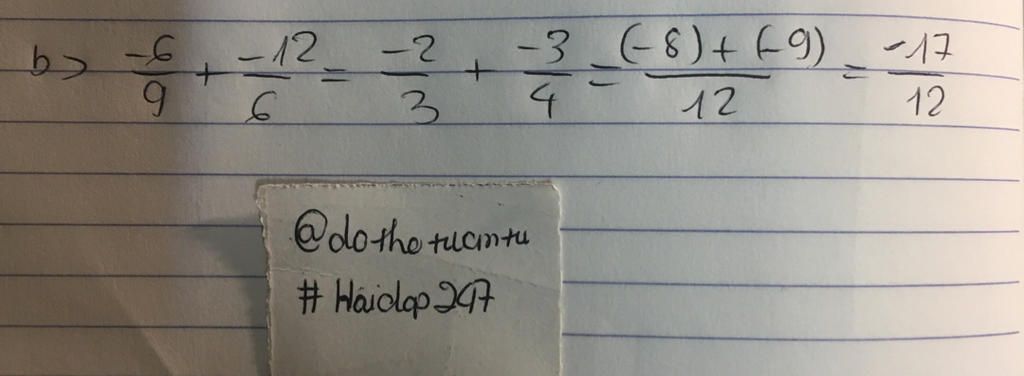 b> -6/9 + -12/6 = -2/3 + -3/4 = (-8)+(-9)/12 = -17/12
@dothetuantu
#Hoidap247